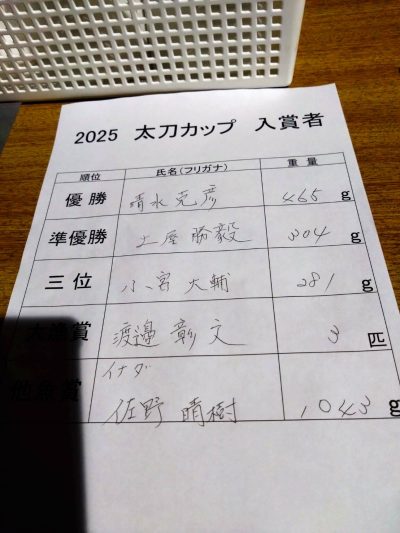 2025 太刀カップ 入賞者
順位 氏名(フリガナ) 重量
優勝 清水克彦 465 g
準優勝 土屋勝毅 304 g
三位 小宮大輔 281 g
大漁賞 渡邉彰文 3 匹
イナダ
他魚賞 佐野晴樹 1043 g